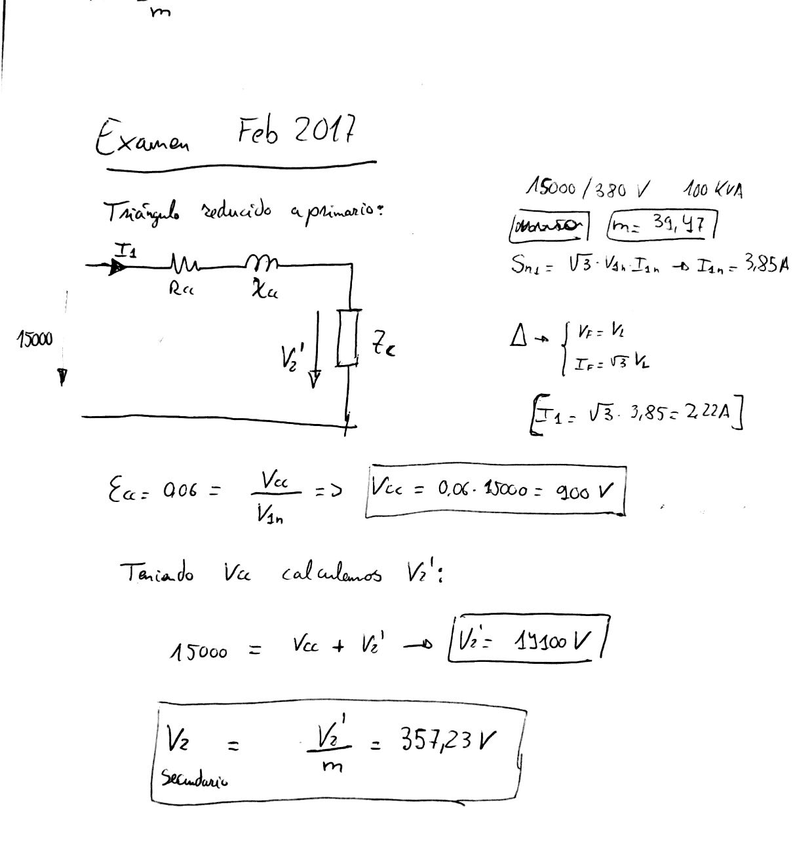 m
Examen Feb 2017
Triángulo reducido a primario:
15000 / 380 V 100 KVA
m = 39,47
Sn1 = √3 · V1n · I1n → I1n = 3,85A
I1
Rcc Xcc
15000
V2' Zc
Δ → { VF = VL
IF = √3 VL
[I1 = √3 · 3,85 = 2,22A]
Ecc = 0,06 = Vcc / V1n => Vcc = 0,06 · 15000 = 900 V
Teniendo Vcc calculamos V2':
15000 = Vcc + V2' → V2' = 14100 V
V2 = V2' / m = 357,23 V
Secundario